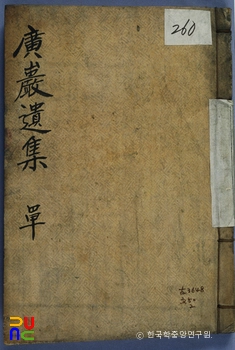 廣巖遺集 單
260
古3648
ⓒ 한국학중앙연구원